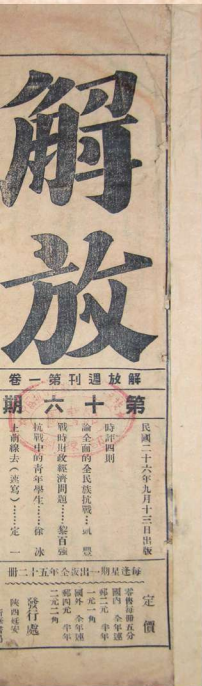 解放
解放週刊第一卷
第十六期
民國二十六年九月十三日出版
時評四則
論全面的全民族抗戰……凱豐
戰時財政經濟問題……黎百強
抗戰中的青年學生……徐冰
上前線去(速寫)……定一
每逢星期一出版全年五十二冊
定價
零售每冊五分
國內 全年連
郵二元 半年
一元一角
國外 全年連
郵四元 半年
二元二角
發行處
陝西延安